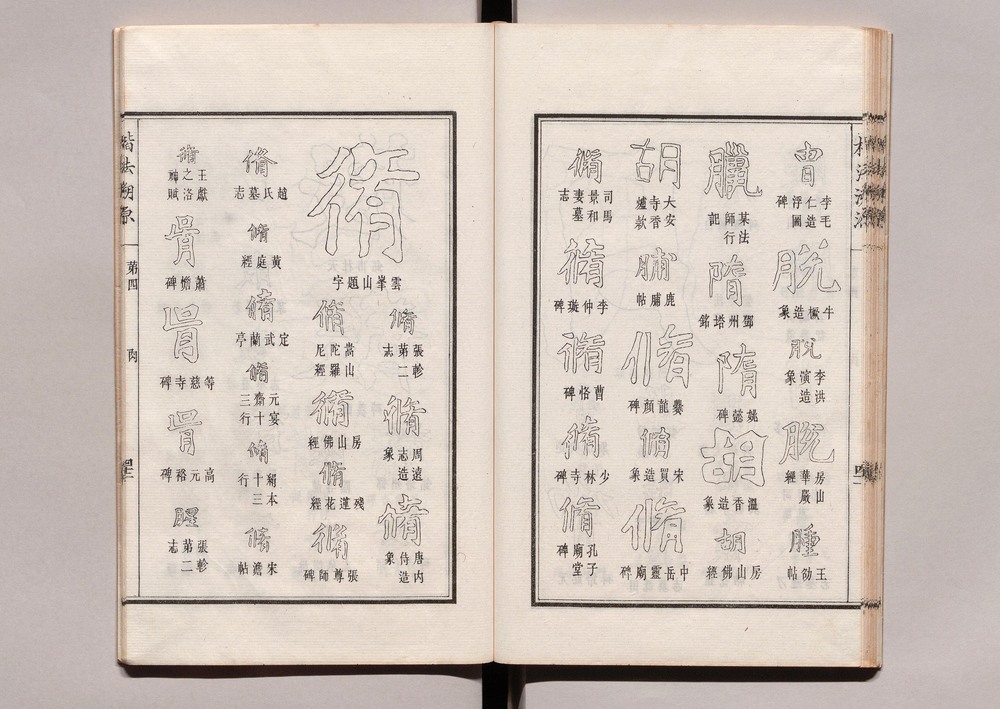 胄
李毛仁造浮圖碑
脫
牛橛造象
脫
李洪演造象
脫
房山華嚴經
腫
王劭帖
臘
某法師行記
隋
鄧州塔銘
隋
姚懿碑
胡
溫香造象
胡
房山佛經
胡
大安寺香爐款
脯
鹿脯帖
脩
爨龍顏碑
脩
宋買造象
脩
中岳靈廟碑
脩
司馬景和妻墓志
脩
李仲璇碑
脩
曹恪碑
脩
少林寺碑
脩
孔子廟堂碑
脩
雲峯山題字
脩
張軫第二志
脩
周遠志造象
脩
唐内侍造象
脩
嵩山陀羅尼經
脩
房山佛經
脩
殘蓮花經
脩
張尊師碑
脩
趙氏墓志
脩
黃庭經
脩
定武蘭亭
脩
元宴齋十三行
脩
絹本十三行
脩
宋儋帖
脩
王獻之洛神賦
胥
蕭憺碑
胥
等慈寺碑
胥
高元裕碑
腥
張軫第二志
楷法溯源 第四 肉